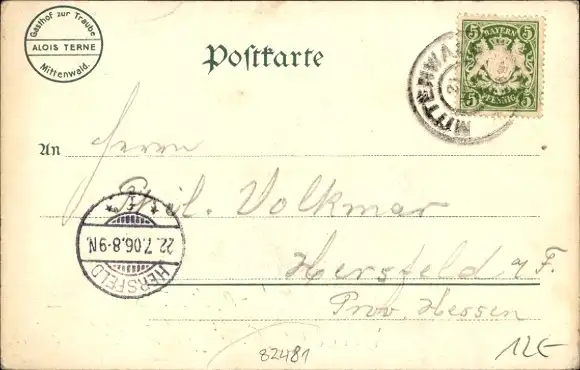 Gasthof zur Traube
ALOIS TERNE
Mittenwald.
Postkarte
5 BAYERN 5
5 PFENNIG 5
MITTENWA
An Herrn
Phil. Volkmar
Hersfeld
Prov. Hessen
22.7.06.8-9N.
HERSFELD
82481
12€